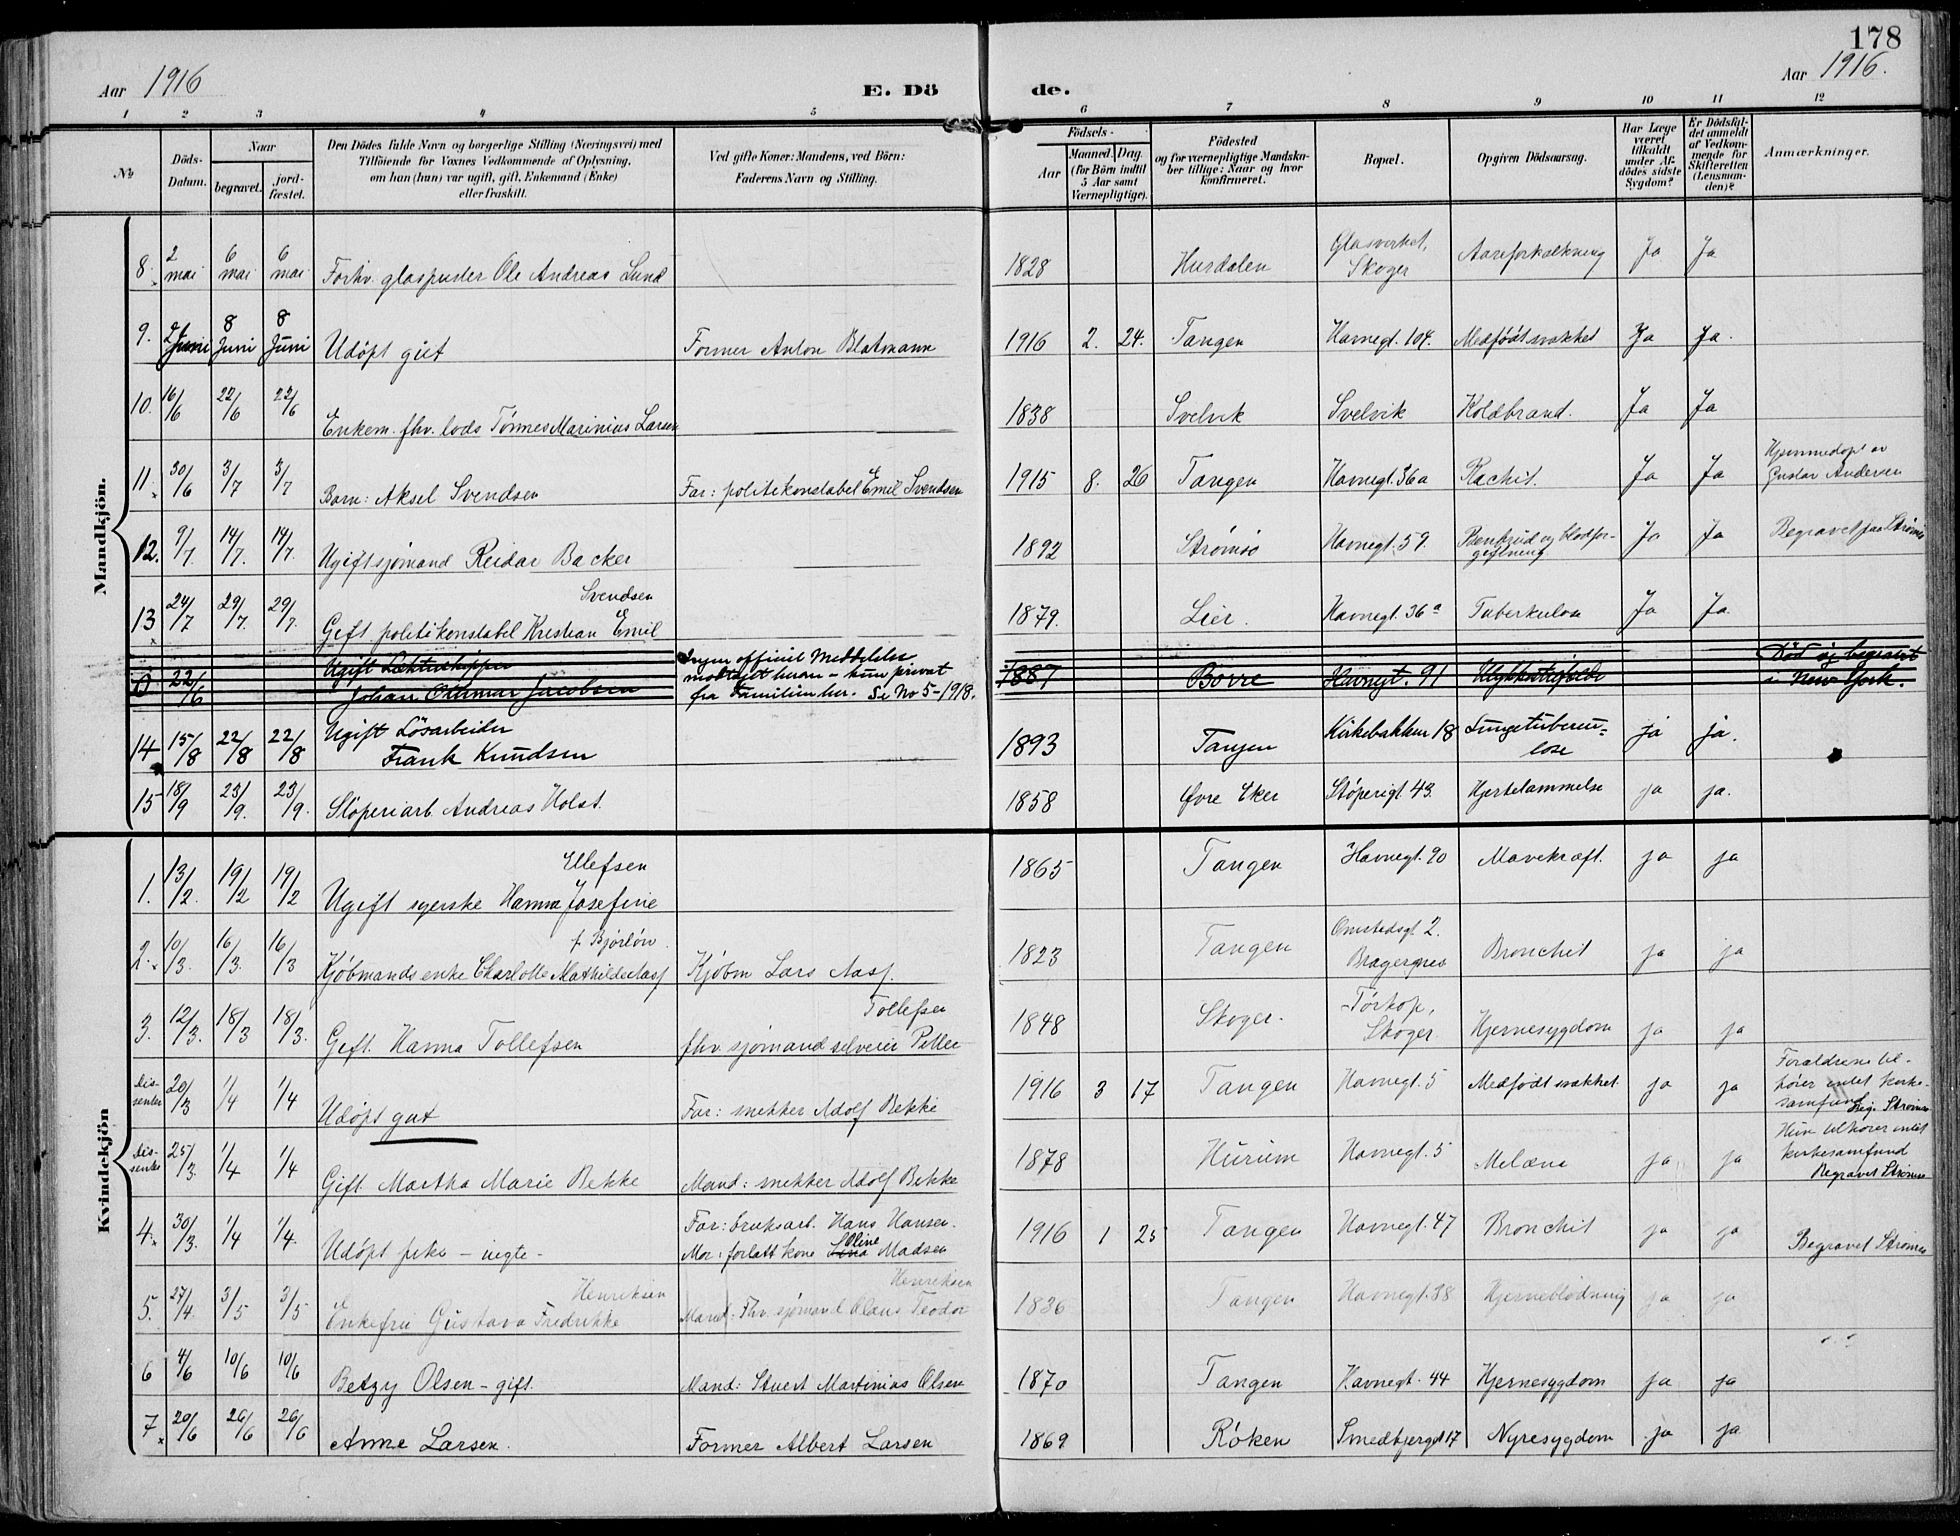 178
Aar 1916
E. Dö de.
Aar 1916.
1 2 3 4 5 6 7 8 9 10 11 12
No
Döds-Datum.
Naar
begravet.
jord-fæstet.
Den Dödes fulde Navn og borgerlige Stilling (Næringsvei) med
Tilföiende för Voxnes Vedkommende af Oplysning,
om han (hun) var ugift, gift, Enkemand (Enke)
eller fraskilt.
Ved gifte Koner: Mandens, ved Börn:
Faderens Navn og Stilling.
Födsels-
Aar
Maaned. Dag.
(for Börn indtil
5 Aar samt
Værnepligtige).
Födested
og for værnepligtige Mandska-
ber tillige: Naar og hvor
konfirmeret.
Bopæl.
Opgiven Dödsaarsag.
Har Læge
været
tilkaldt
under Af-
dödes sidste
Sygdom?
Er Dödsfal-
det anmeldt
af Vedkom-
mende for
Skifteretten
(Lensman-
den)?
Anmærkninger.
Mandkjön.
8. 2 mai 6 mai 6 mai Forhv. glaspuster Ole Andreas Lund 1828 Hurdalen Glasverket, Skoger Aareforkalkning Ja Ja
9. 2 Juni 8 Juni 8 Juni Udöpt gut Former Anton Blatmann 1916 2. 24. Tangen Havnegt. 104. Medfödt svakhet Ja Ja.
10. 16/6 22/6 22/6 Enkem. fhv. lods Tönnes Marinius Larsen 1838 Svelvik Svelvik Koldbrand. Ja Ja
11. 30/6 3/7 3/7 Barn: Aksel Svendsen Far: politikonstabel Emil Svendsen 1915 8. 26 Tangen Havnegt. 36a Rachit. Ja Ja Hjemmedöpt av Gustav Andersen
12. 9/7. 14/7. 14/7. Ugift sjömand Reidar Backer 1892 Strömsö Havnegt. 59. Benbrud og blodfor-giftning Ja Ja Begravet paa Strömsö
13 24/7 29/7. 29/7. Gift politikonstabel Kristian Emil Svendsen 1879. Lier. Havnegt. 36a Tuberkulose Ja Ja.
22/6 Ugift Johan Ottomar Jacobsen Ingen officiel Meddelelse modtaget herom - kun privat fra Familien her. Se No 5-1918. 1887 Borre Havnegt. 91 Ulykkestilfælde Död og begravet i New York.
14 15/8 22/8 22/8 Ugift Lösarbeider Frank Knudsen 1893 Tangen Kirkebakken 18 Lungetuberku=lose ja ja.
15 18/9 23/9. 23/9. Stöperiarb. Andreas Holst. 1858 Øvre Eker Stöperigt. 43. Hjertelammelse ja ja.
Kvindekjön
1. 13/2. 19/2 19/2 Ugift syerske Hanna Josefine Ellefsen 1865 Tangen Havnegt. 90 Mavekræft. ja ja
2. 10/3. 16/3. 16/3 Kjöbmands enke Charlotte Mathilde Aass f. Björlöv. Kjöbm Lars Aass. 1823 Tangen Omstedsgt. 2. Bragernes Bronchit ja ja
3. 12/3. 18/3 18/3. Gift. Hanna Tollefsen fhv. sjömand selveier Petter Tollefsen 1848 Skoger. Törkop, Skoger. Hjernesygdom ja ja
Dis-senter 20/3 1/4 1/4 Udöpt gut Far: snekker Adolf Bekke 1916 3 17 Tangen Havnegt. 5 Medfödt svakhet. ja ja Forældrene til-hörer intet kirke-samfund Begr. Strömsö
Dis-senter 25/3. 1/4 1/4 Gift. Martha Marie Bekke Mand: snekker Adolf Bekke 1878 Hurum Havnegt. 5 Melæna ja ja Hun tilhörer intet kirkesamfund Begravet Strömsö
4. 30/3. 1/4 1/4. Udöpt pike - uegte - Far: bruksarb. Hans Hansen. Mor: forlatt kone Lina Oline Madsen 1916 1 25 Tangen Havnegt. 47 Bronchit ja ja Begravet Strömsö
5. 27/4. 3/5 3/5 Enkefru Gustava Fredrikke Henriksen Mand: Fhv. sjömand Olaus Teodor Henriksen 1836 Tangen Havnegt. 38 Hjerneblödning ja ja
6 4/6 10/6 10/6 Betzy Olsen - gift. Mand: Stuert Martinius Olsen 1870 Tangen Havnegt. 44 Hjernesygdom ja ja
7 20/6 26/6 26/6 Anne Larsen. Former Albert Larsen 1869 Röken Smedbjerget 17 Nyresygdom ja ja